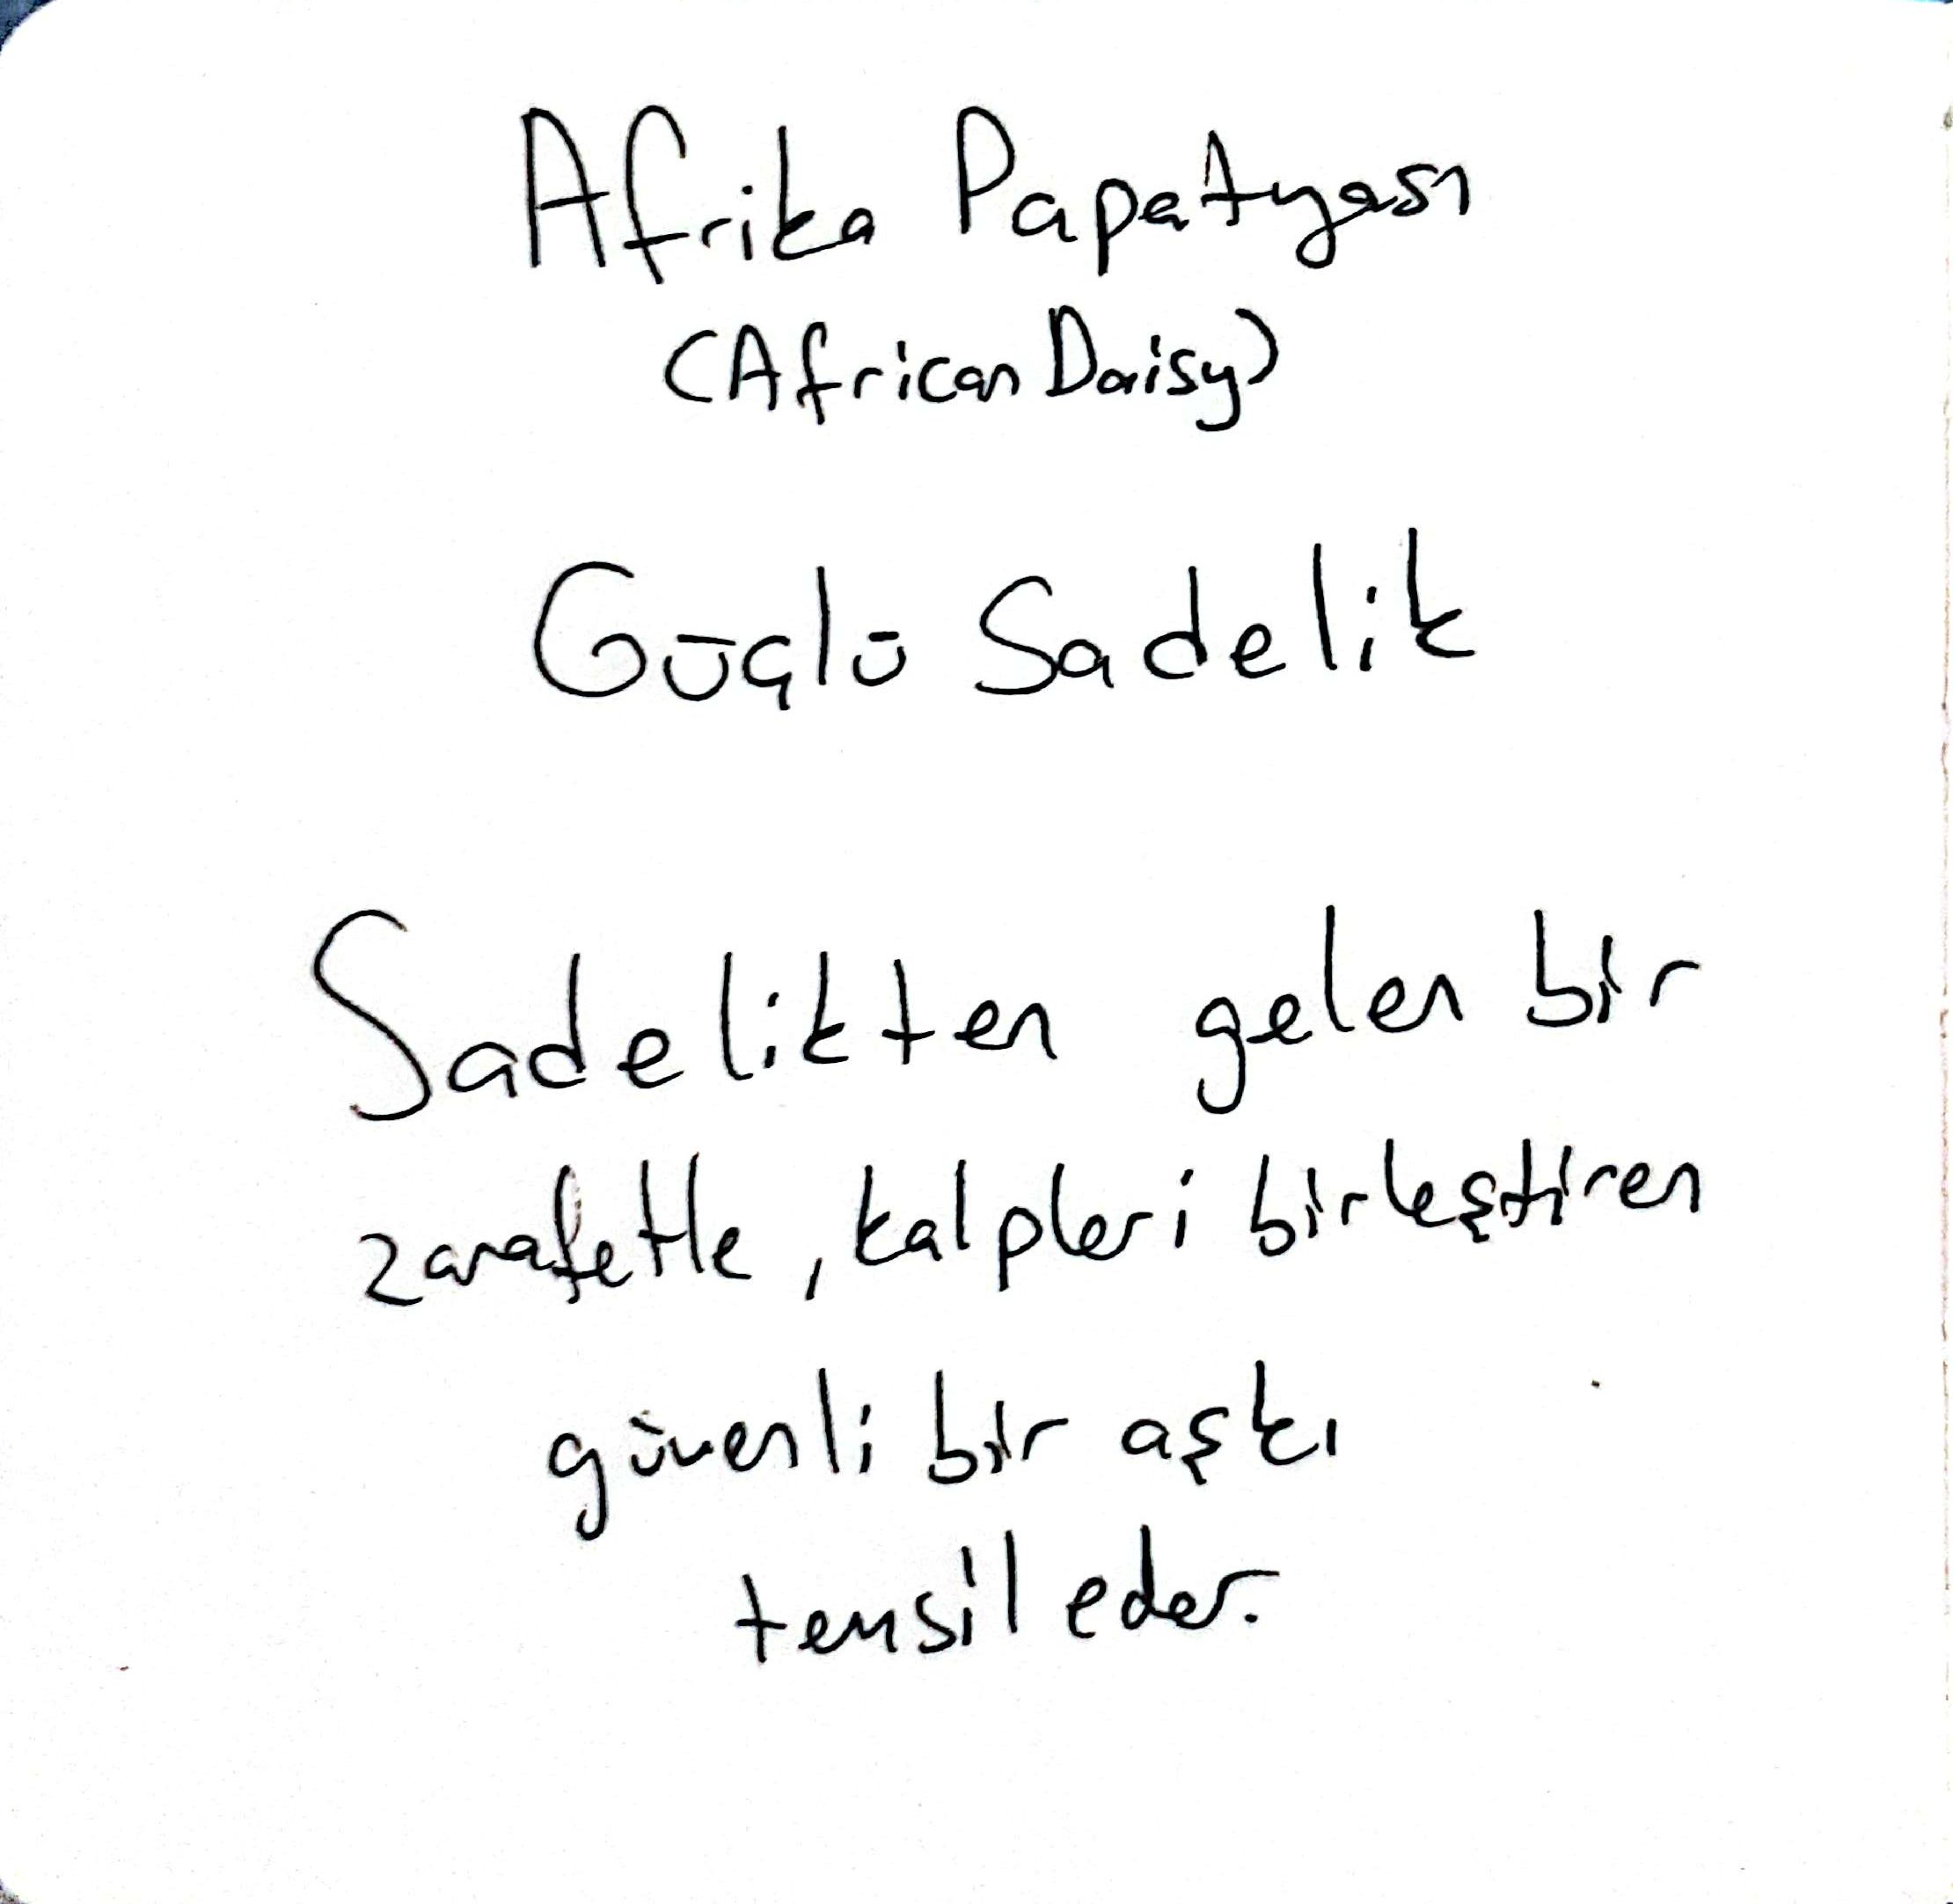 Afrika Papatyası
(African Daisy)
Güçlü Sadelik
Sadelikten gelen bir
zarafetle, kalpleri birleştiren
güvenli bir aşkı
temsil eder.